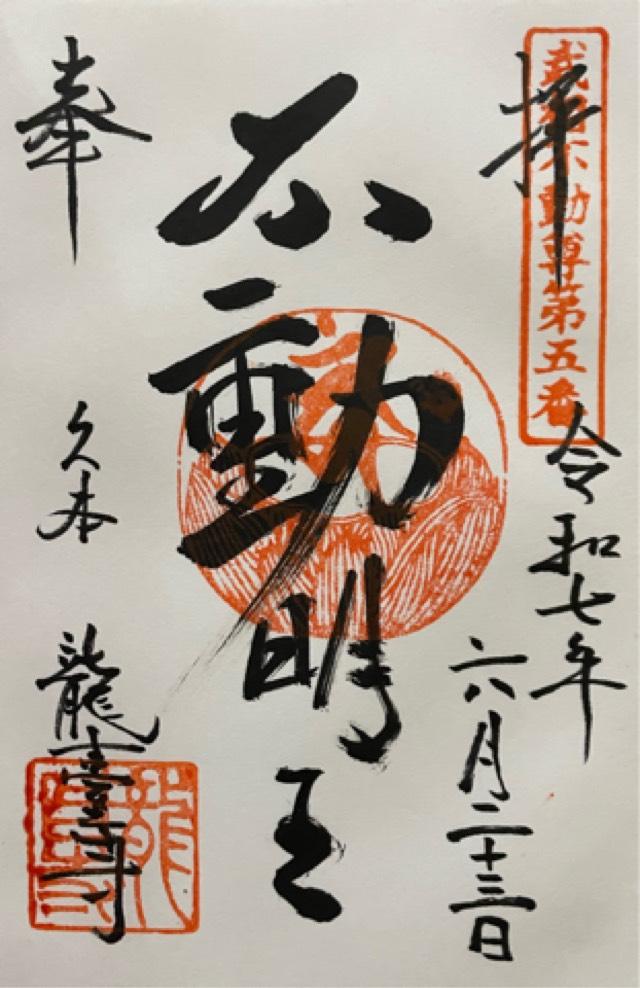 奉
拝
武相不動尊第五番
不動明王
令和七年
六月二十三日
久本
龍臺寺